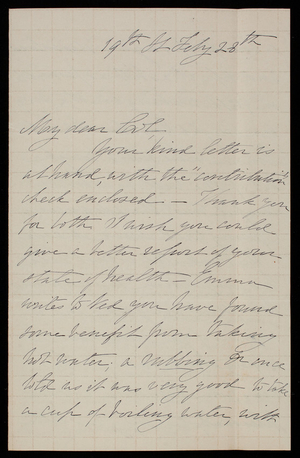 19th St Feby 28th
My dear Col,
Your kind letter is
at hand, with the "contribution"
check enclosed - Thank you
for both. I wish you could
give a better report of your
state of health - Emma
writes to Ted you have found
some benefit from taking
hot water, a once
told us it was very good to take
a cup of boiling water, with